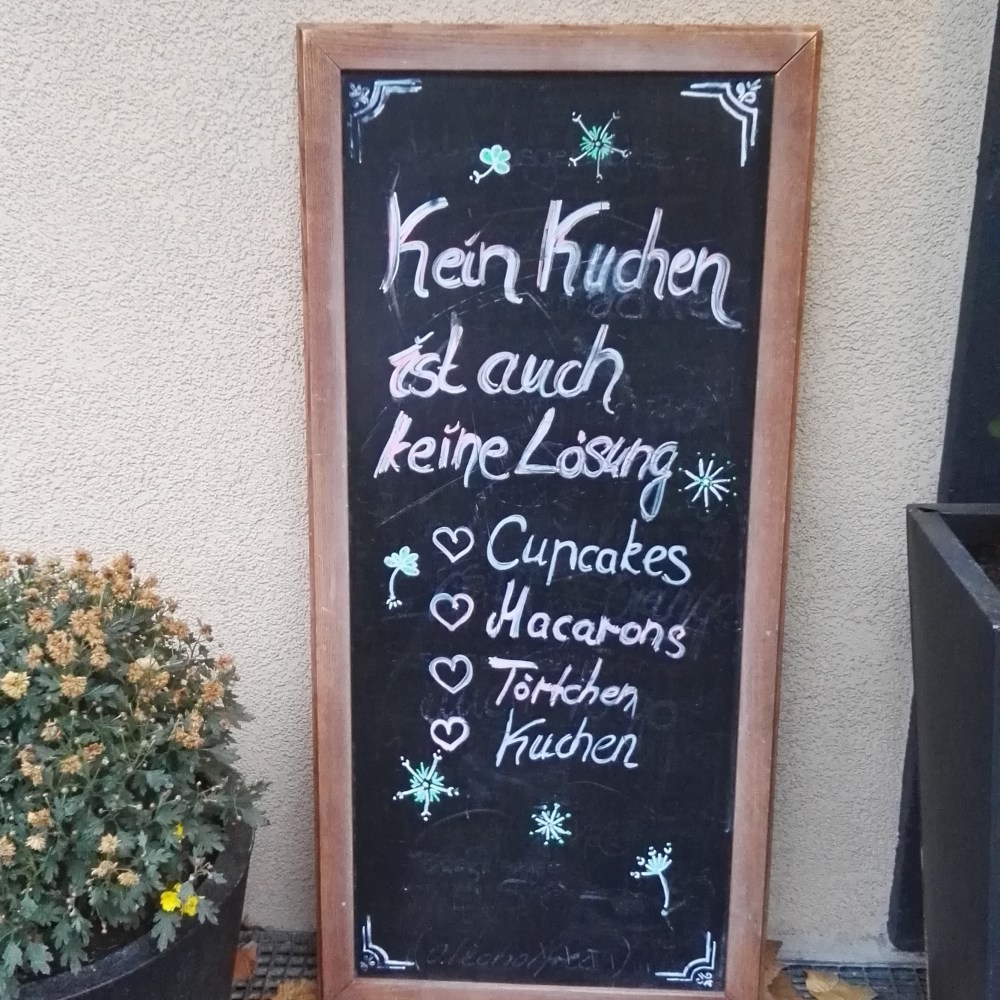 Kein Kuchen
ist auch
keine Lösung
Cupcakes
Macarons
Törtchen
Kuchen